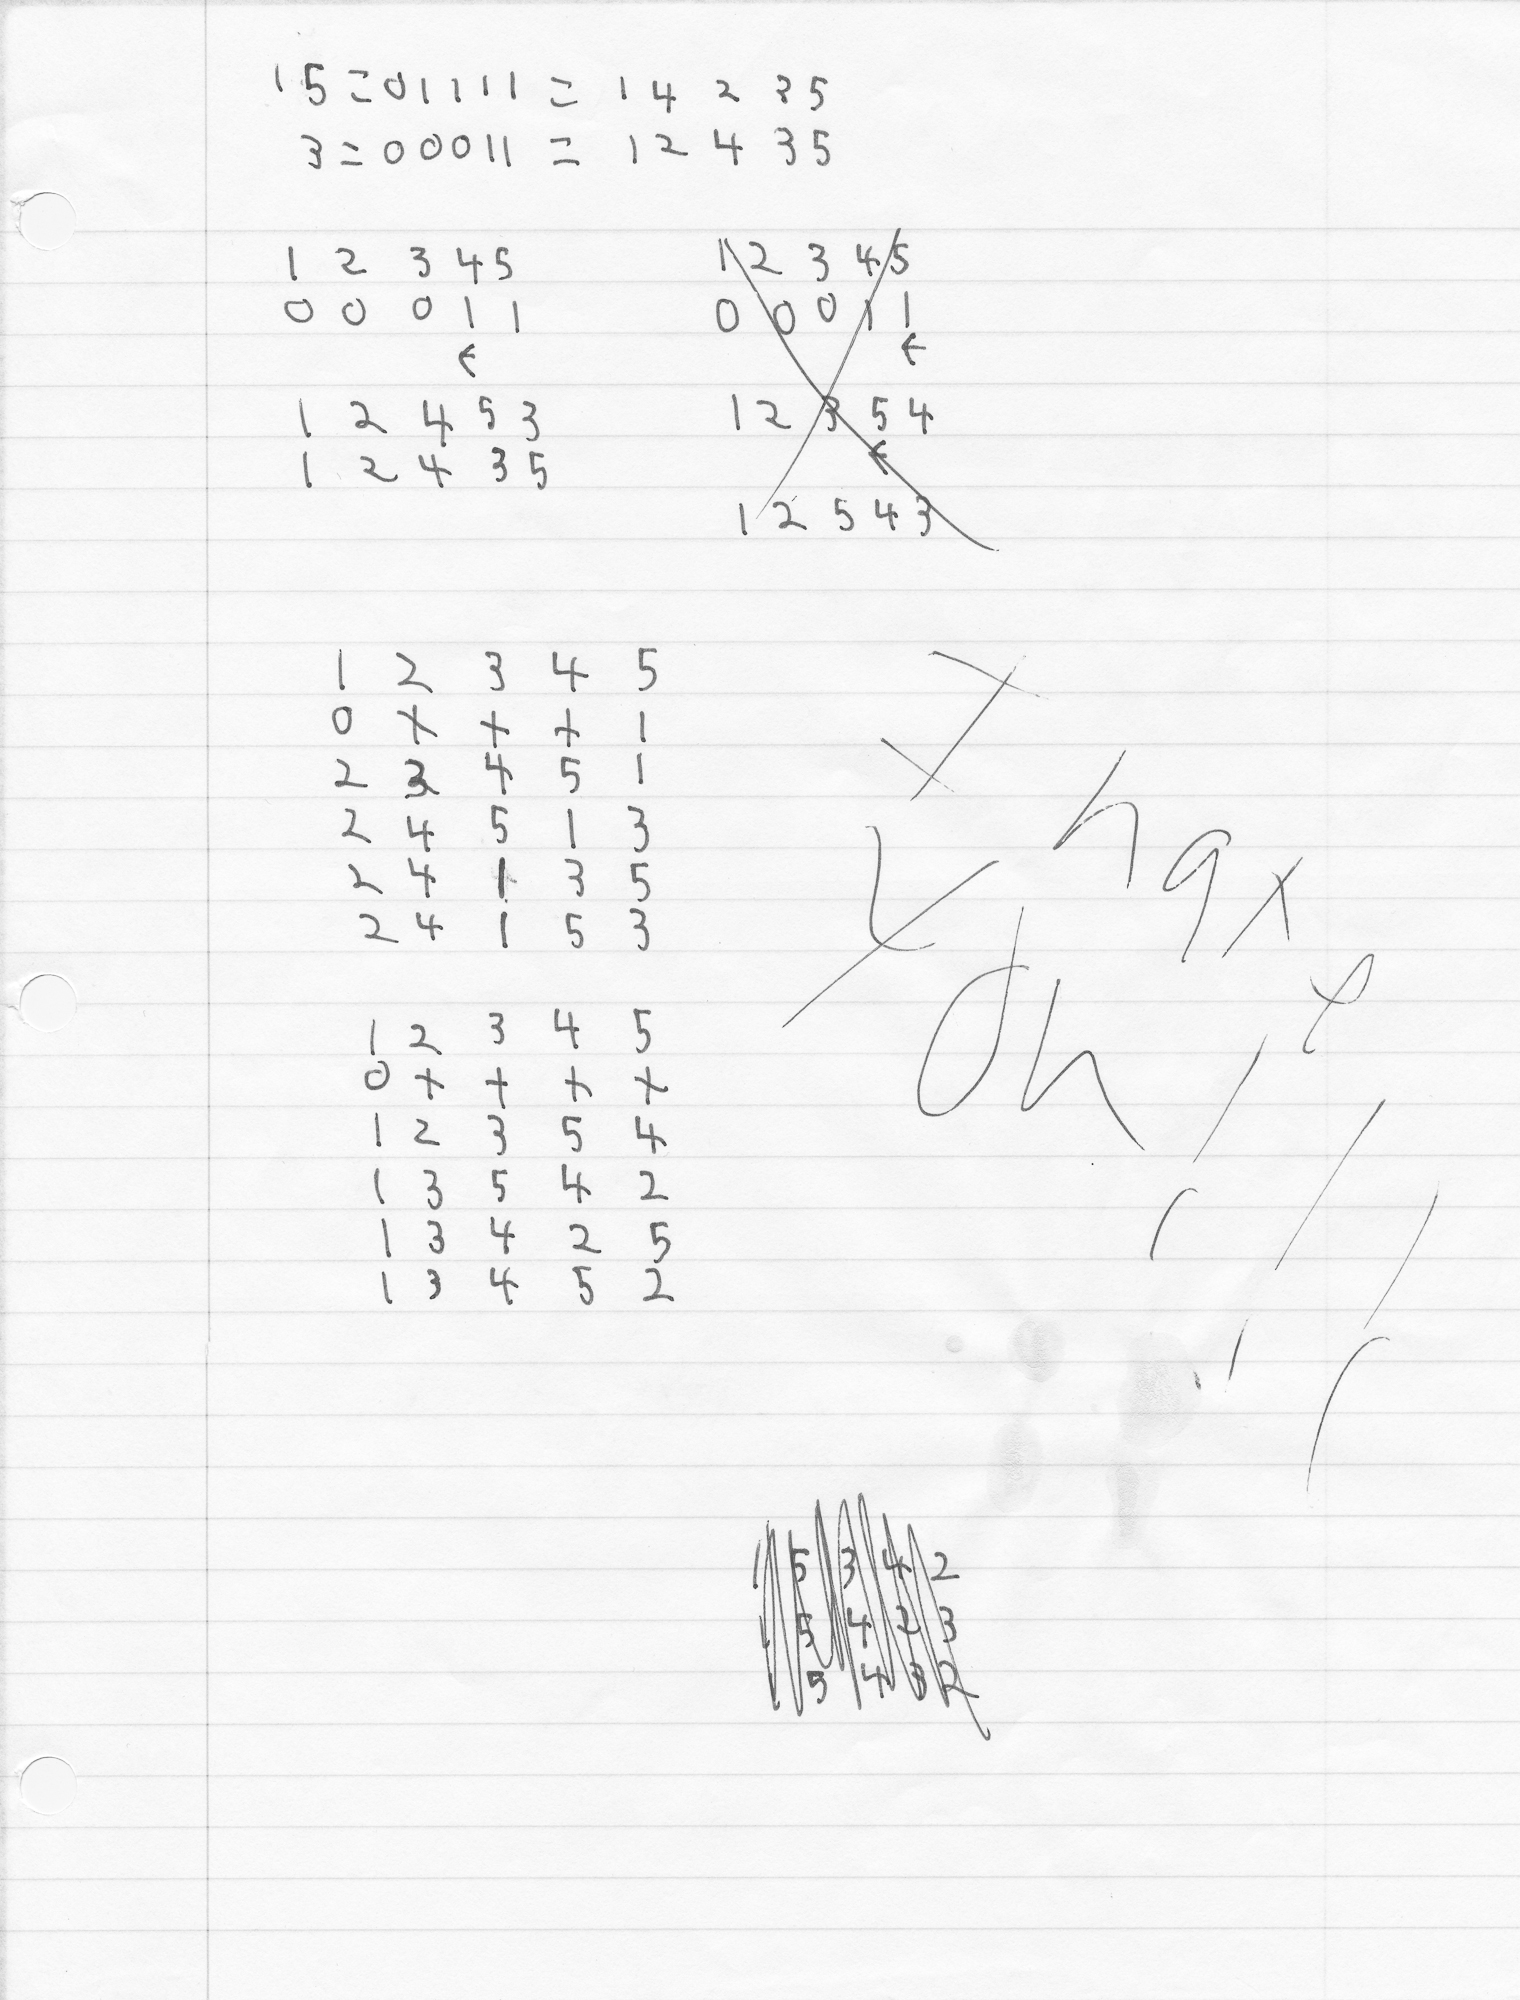 15=01111 = 14 2 35
3=00011 = 12 4 35
1 2 3 45
0 0 0 1 1
←
1 2 4 5 3
1 2 4 3 5
1 2 3 4 5
0 0 0 1 1
←
1 2 3 5 4
←
1 2 5 4 3
1 2 3 4 5
0 + + + 1
2 3 4 5 1
2 4 5 1 3
2 4 1 3 5
2 4 1 5 3
1 2 3 4 5
0 + + + +
1 2 3 5 4
1 3 5 4 2
1 3 4 2 5
1 3 4 5 2
1 5 3 4 2
1 5 4 2 3
5 4 3 2